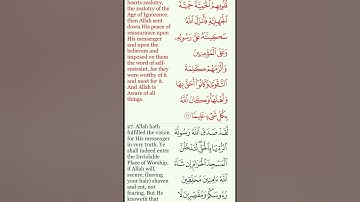 hearts zealotry,
the zealotry of the
Age of Ignorance,
then Allah sent
down His peace of
reassurance upon
His messenger and
upon the believers
and imposed on
them the word of self-
restraint, for they
were worthy of it
and meet for it.
And Allah is
Aware of all
things.
قُلُوبِهِمُ الْحَمِيَّةَ حَمِيَّةَ
الْجَاهِلِيَّةِ فَأَنزَلَ اللَّهُ
سَكِينَتَهُ عَلَىٰ رَسُولِهِ
وَعَلَى الْمُؤْمِنِينَ
وَأَلْزَمَهُمْ كَلِمَةَ
التَّقْوَىٰ وَكَانُوا أَحَقَّ بِهَا
وَأَهْلَهَا وَكَانَ اللَّهُ
بِكُلِّ شَيْءٍ عَلِيمًا
27. Allah hath
fulfilled the vision
for His messenger
in very truth. Ye
shall indeed enter
the Inviolable
Place of Worship,
if Allah will,
secure, (having
your hair) shaven
and cut, not
fearing. But He
knoweth that
لَّقَدْ صَدَقَ اللَّهُ رَسُولَهُ
الرُّؤْيَا بِالْحَقِّ لَتَدْخُلُنَّ
الْمَسْجِدَ الْحَرَامَ إِن شَاءَ
اللَّهُ آمِنِينَ مُحَلِّقِينَ
رُءُوسَكُمْ وَمُقَصِّرِينَ لَا